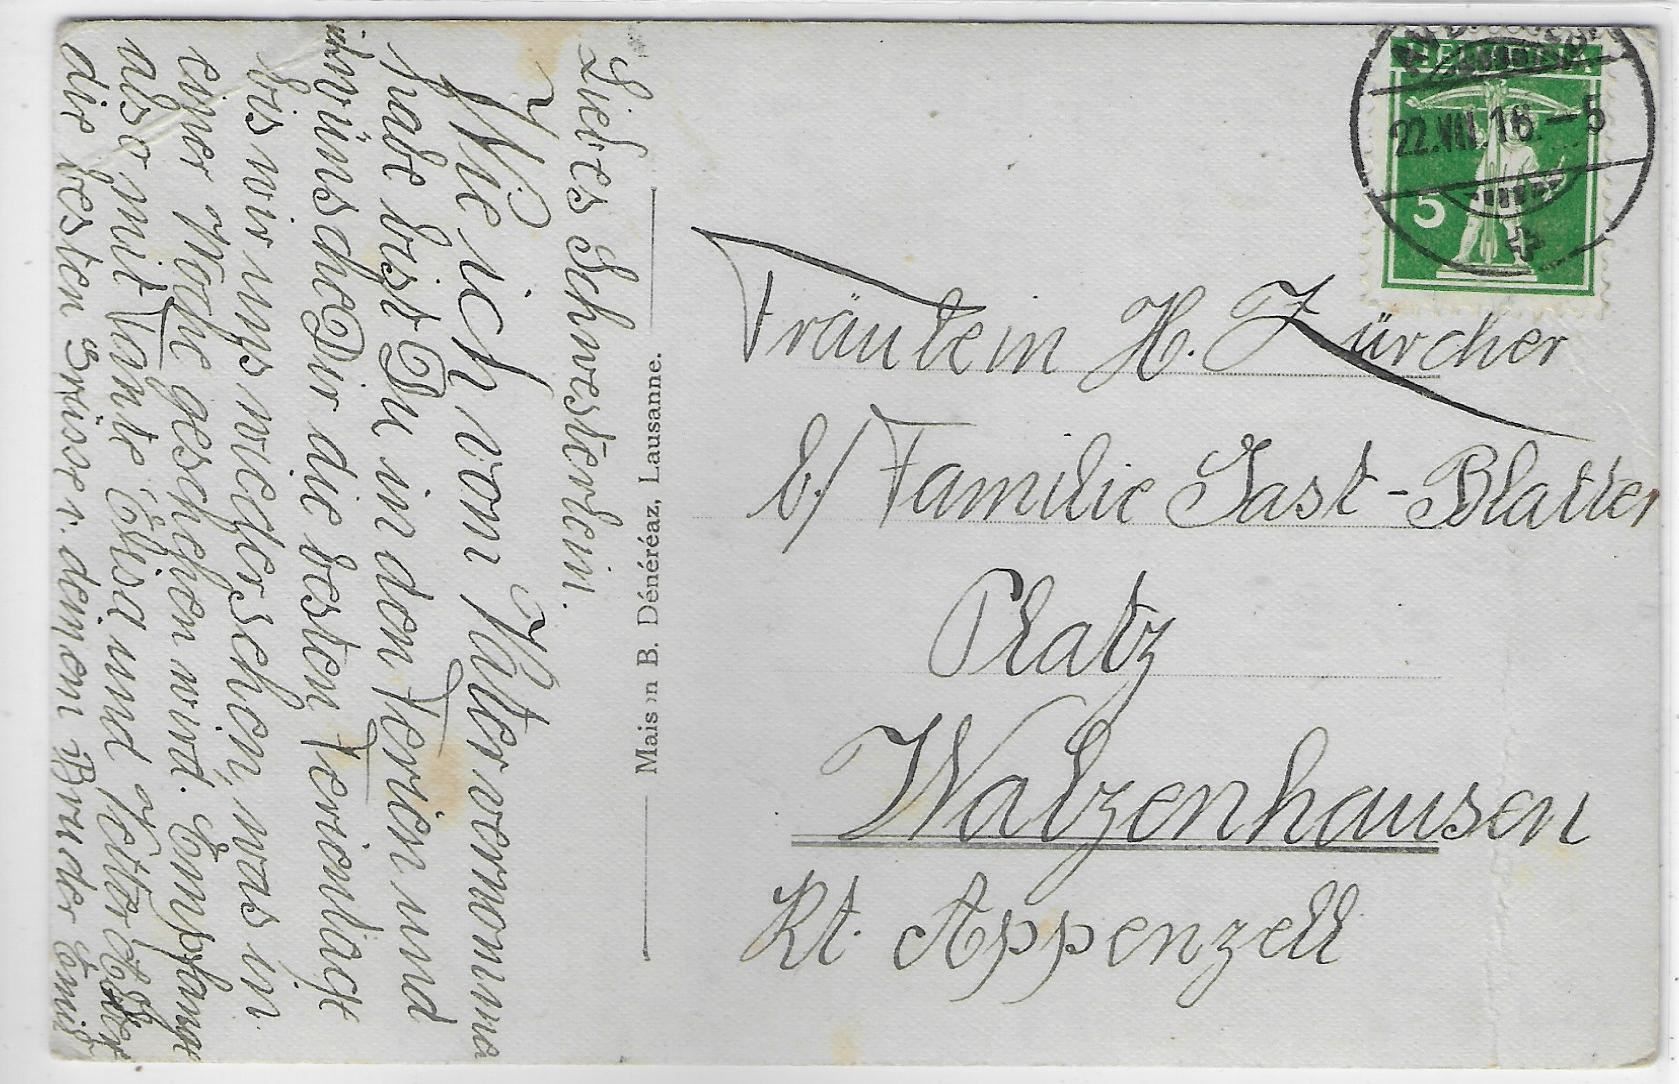 Liebes Schwesterlein.
Wie ich vom Vater vernommen
habe bist Du in den Ferien und
ich wünsche Dir die besten Ferientage
bis wir uns wiedersehen, was in
einer Woche geschehen wird. Empfange
also mit Tante Elisa und Vetter
die besten Grüsse v. deinem Bruder Emil
Maison B. Dénéréaz, Lausanne.
HELVETIA
22.VII.16.–5
5
Fräulein H. Zürcher
b/ Familie Jast-Blatter
Platz
Walzenhausen
Kt. Appenzell